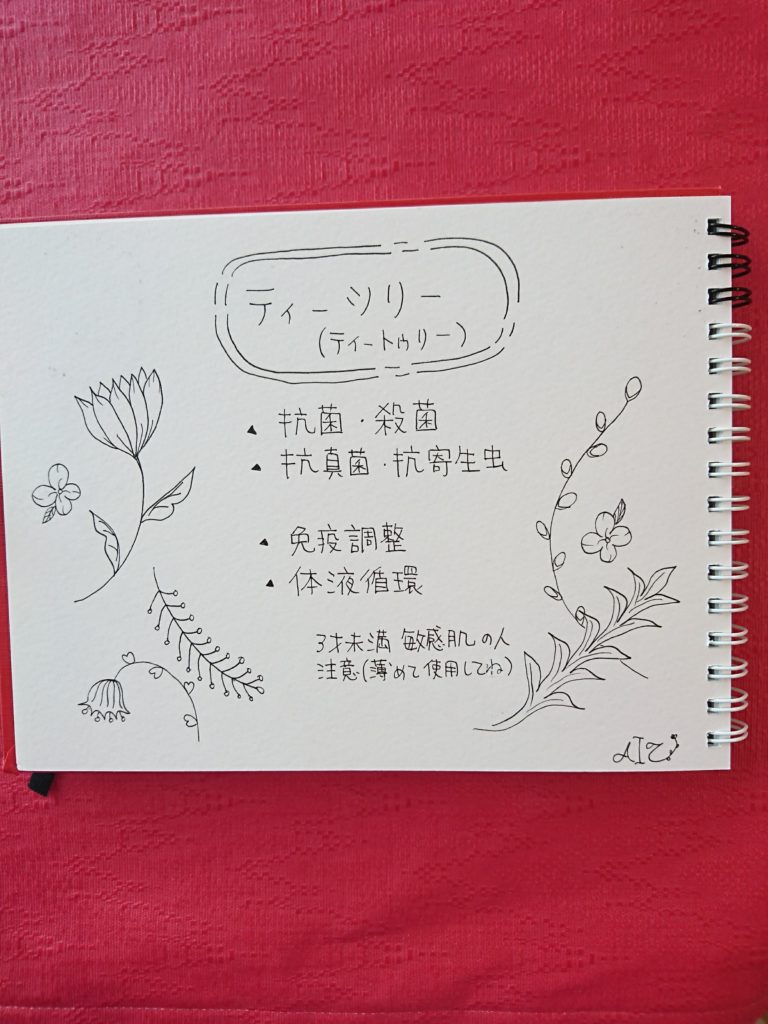 ティーツリー
(ティートゥリー)
▲ 抗菌・殺菌
▲ 抗真菌・抗寄生虫
▲ 免疫調整
▲ 体液循環
3才未満 敏感肌の人
注意(薄めて使用してね)